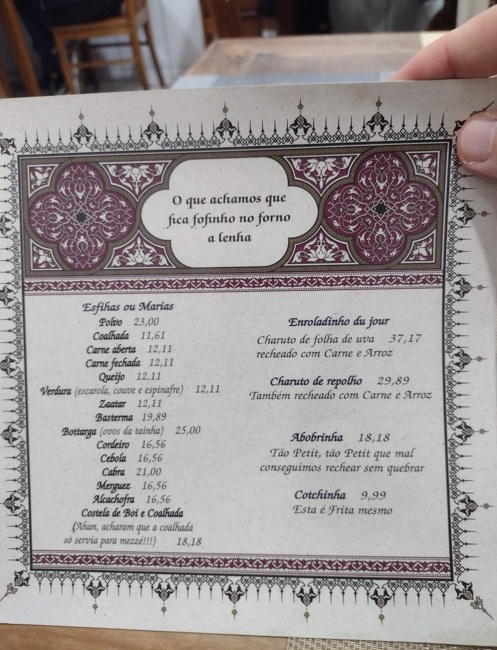 O que achamos que
fica fofinho no forno
a lenha
Esfihas ou Marias
Polvo 23,00
Coalhada 11,61
Carne aberta 12,11
Carne fechada 12,11
Queijo 12,11
Verdura (escarola, couve e espinafre) 12,11
Zaatar 12,11
Basterma 19,89
Bottarga (ovos da tainha) 25,00
Cordeiro 16,56
Cebola 16,56
Cabra 21,00
Merguez 16,56
Alcachofra 16,56
Costela de Boi e Coalhada
(Ahan, acharam que a coalhada
só servia para mezzé!!!) 18,18
Enroladinho du jour
Charuto de folha de uva 37,17
recheado com Carne e Arroz
Charuto de repolho 29,89
Também recheado com Carne e Arroz
Abobrinha 18,18
Tão Petit, tão Petit que mal
conseguimos rechear sem quebrar
Cotchinha 9,99
Esta é Frita mesmo